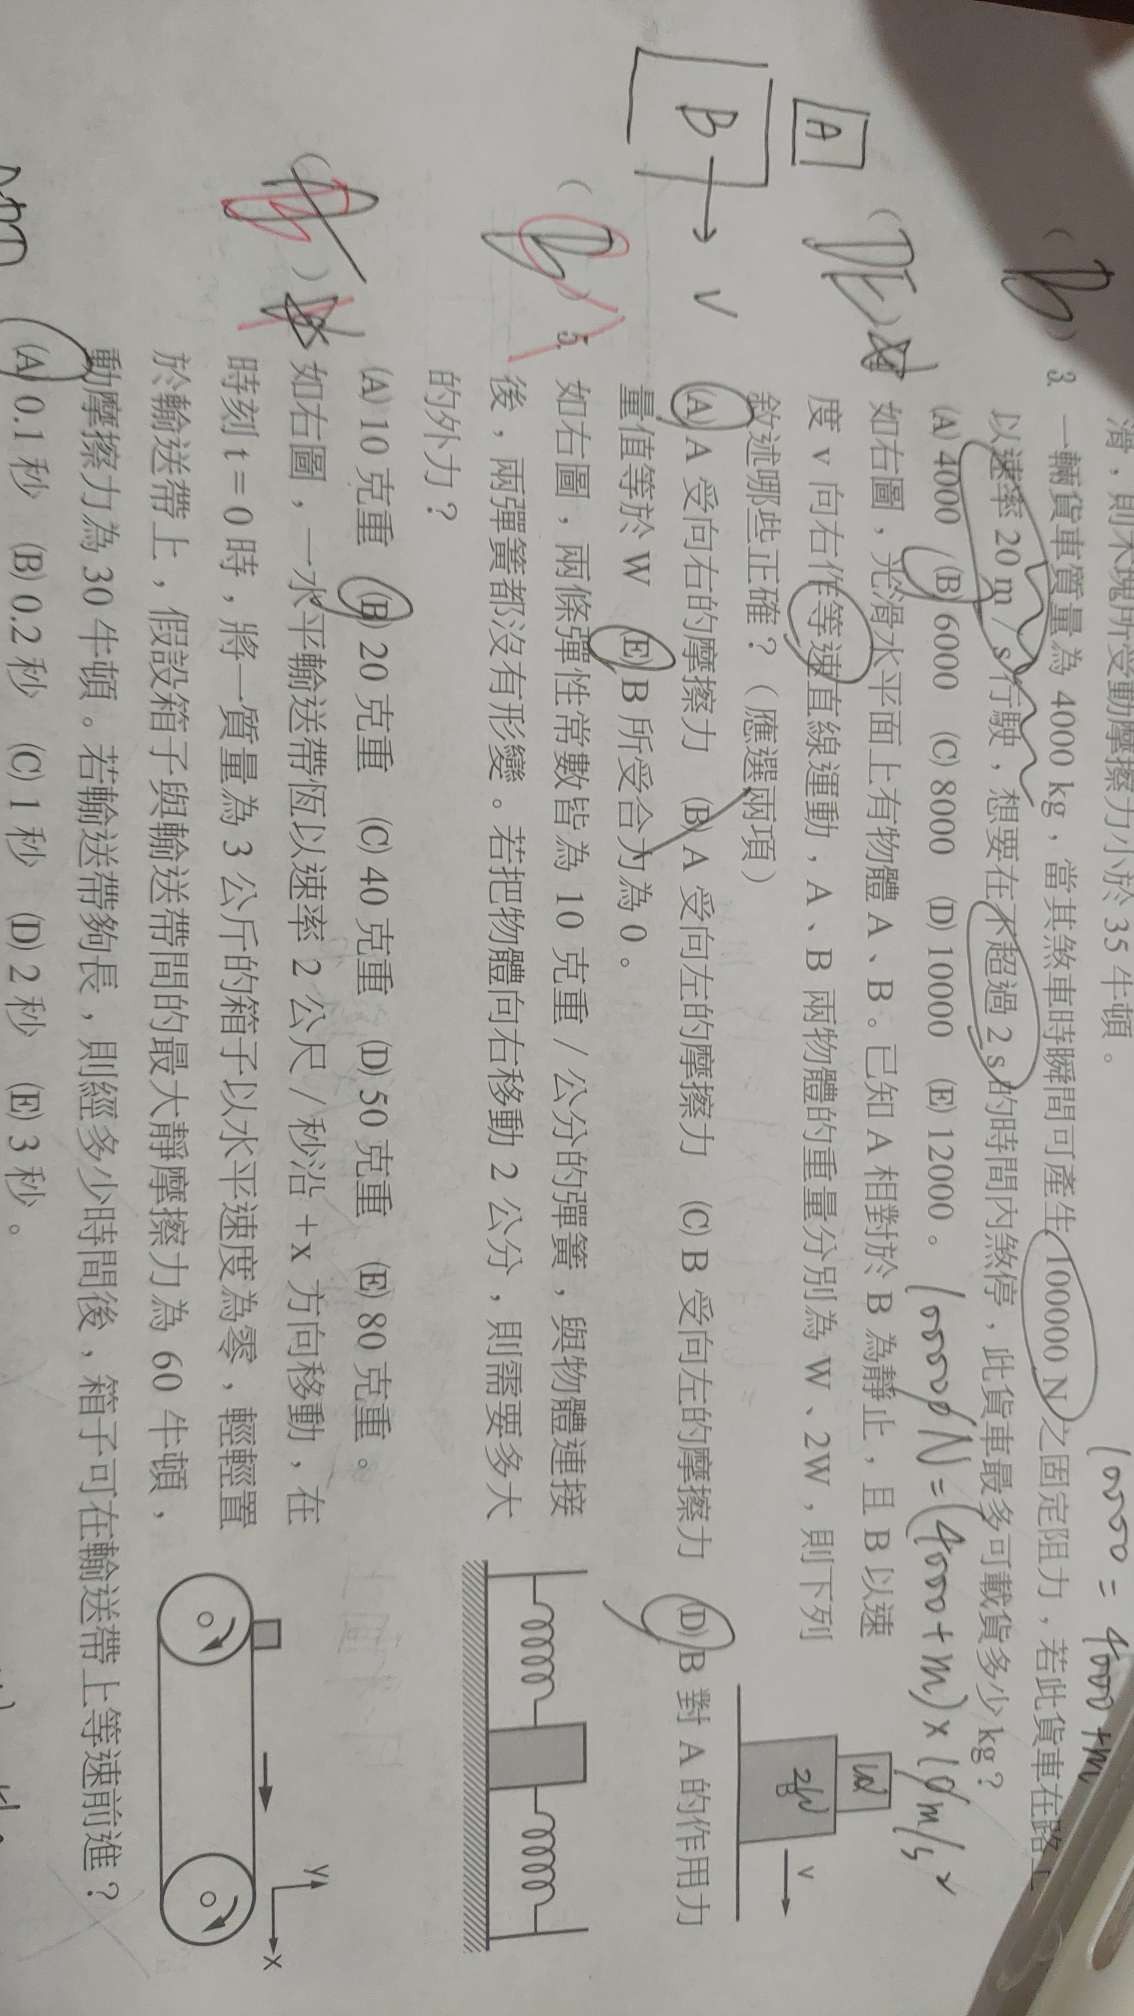 滑，則木塊所受動摩擦力小於 35 牛頓。
10000 = 4000 + m
( B ) 3. 一輛貨車質量為 4000 kg，當其煞車時瞬間可產生 100000 N 之固定阻力，若此貨車在路上
以速率 20 m / s 行駛，想要在不超過 2 s 的時間內煞停，此貨車最多可載貨多少 kg？
(A) 4000 (B) 6000 (C) 8000 (D) 10000 (E) 12000。
100000 N = (4000 + m) × 10 m/s²
( DE )
如右圖，光滑水平面上有物體 A、B。已知 A 相對於 B 為靜止，且 B 以速
度 v 向右作等速直線運動，A、B 兩物體的重量分別為 W、2W，則下列
敘述哪些正確？（應選兩項）
(A) A 受向右的摩擦力 (B) A 受向左的摩擦力 (C) B 受向左的摩擦力 (D) B 對 A 的作用力
量值等於 W (E) B 所受合力為 0。
A
B
v
W
2W
B
v
( B ) 5. 如右圖，兩條彈性常數皆為 10 克重 / 公分的彈簧，與物體連接
後，兩彈簧都沒有形變。若把物體向右移動 2 公分，則需要多大
的外力？
(A) 10 克重 (B) 20 克重 (C) 40 克重 (D) 50 克重 (E) 80 克重。
如右圖，一水平輸送帶恆以速率 2 公尺 / 秒沿 +x 方向移動，在
時刻 t = 0 時，將一質量為 3 公斤的箱子以水平速度為零，輕輕置
於輸送帶上，假設箱子與輸送帶間的最大靜摩擦力為 60 牛頓，
動摩擦力為 30 牛頓。若輸送帶夠長，則經多少時間後，箱子可在輸送帶上等速前進？
(A) 0.1 秒 (B) 0.2 秒 (C) 1 秒 (D) 2 秒 (E) 3 秒。
y
x